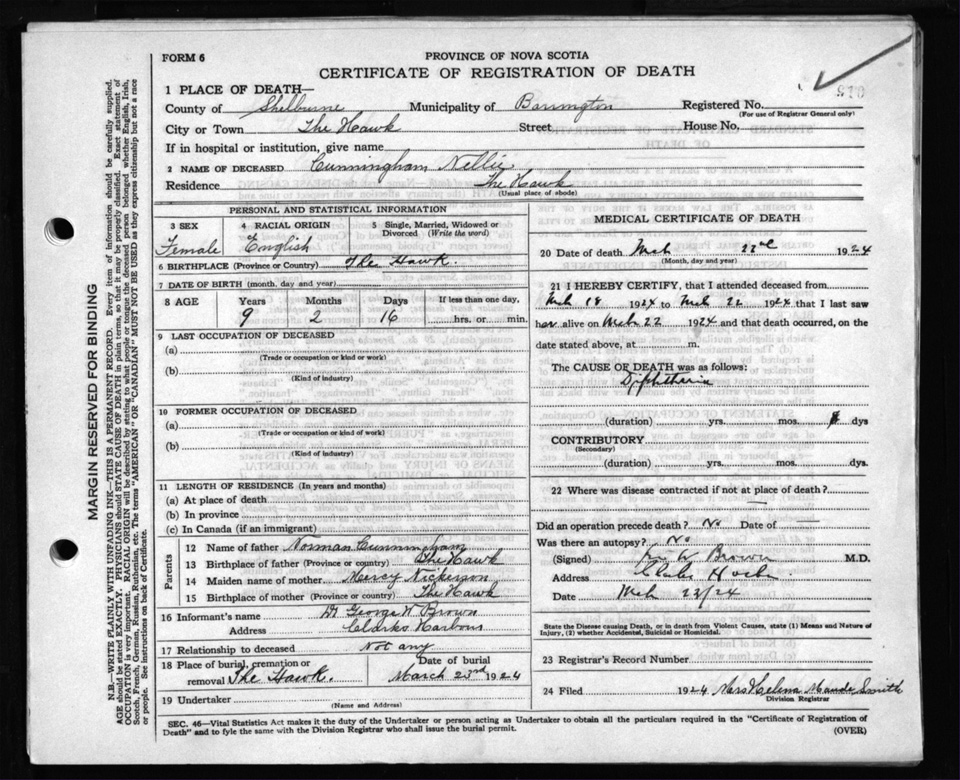 FORM 6
PROVINCE OF NOVA SCOTIA
CERTIFICATE OF REGISTRATION OF DEATH
1 PLACE OF DEATH—
County of Shelburne Municipality of Barrington Registered No.
(For use of Registrar General only)
City or Town The Hawk Street House No.
If in hospital or institution, give name
2 NAME OF DECEASED Cunningham Nellie
Residence The Hawk
(Usual place of abode)
PERSONAL AND STATISTICAL INFORMATION
3 SEX 4 RACIAL ORIGIN 5 Single, Married, Widowed or Divorced (Write the word)
Female English
6 BIRTHPLACE (Province or Country) The Hawk.
7 DATE OF BIRTH (month, day and year)
8 AGE Years Months Days If less than one day,
9 2 16 hrs. or min.
9 LAST OCCUPATION OF DECEASED
(a)
(Trade or occupation or kind or work)
(b)
(Kind of industry)
10 FORMER OCCUPATION OF DECEASED
(a)
(Trade or occupation or kind of work)
(b)
(Kind of industry)
11 LENGTH OF RESIDENCE (In years and months)
(a) At place of death
(b) In province
(c) In Canada (if an immigrant)
Parents
12 Name of father Norman Cunningham
13 Birthplace of father (Province or country) The Hawk
14 Maiden name of mother Mercy Nickerson
15 Birthplace of mother (Province or country) The Hawk
16 Informant's name Dr George W Brown
Address Clarks Harbour
17 Relationship to deceased Not any
18 Place of burial, cremation or Date of burial
removal The Hawk. March 23rd 1924
19 Undertaker
(Name and Address)
MEDICAL CERTIFICATE OF DEATH
20 Date of death Mch 22nd 1924
(Month, day and year)
21 I HEREBY CERTIFY, that I attended deceased from
Mch 18 1924 to Mch 22 1924 that I last saw
her alive on Mch 22 1924 and that death occurred, on the
date stated above, at m.
The CAUSE OF DEATH was as follows:
Diphtheria
(duration) yrs. mos. dys
CONTRIBUTORY
(Secondary)
(duration) yrs. mos. dys.
22 Where was disease contracted if not at place of death?
Did an operation precede death? No Date of —
Was there an autopsy? No
(Signed) W Brown M.D.
Address Clarks
Date Mch 23/24
State the Disease causing Death, or in death from Violent Causes, state (1) Means and Nature of
Injury, (2) whether Accidental, Suicidal or Homicidal.
23 Registrar's Record Number
24 Filed 1924 Mrs Helena Maude Smith
Division Registrar
SEC. 46—Vital Statistics Act makes it the duty of the Undertaker or person acting as Undertaker to obtain all the particulars required in the "Certificate of Registration of
Death" and to fyle the same with the Division Registrar who shall issue the burial permit.
(OVER)
MARGIN RESERVED FOR BINDING
N.B.—WRITE PLAINLY WITH UNFADING INK—THIS IS A PERMANENT RECORD. Every item of information should be carefully supplied.
AGE should be stated EXACTLY. PHYSICIANS should STATE CAUSE OF DEATH in plain terms, so that it may be properly classified. Exact statement of
OCCUPATION is very important. RACIAL ORIGIN will be described by stating to what people or tongue the deceased person belonged whether English, Irish,
Scotch, French, German, Russian, Ruthenian, etc. The terms "AMERICAN" or "CANADIAN" MUST NOT BE USED as they express citizenship but not a race or
people. See instructions on back of Certificate.